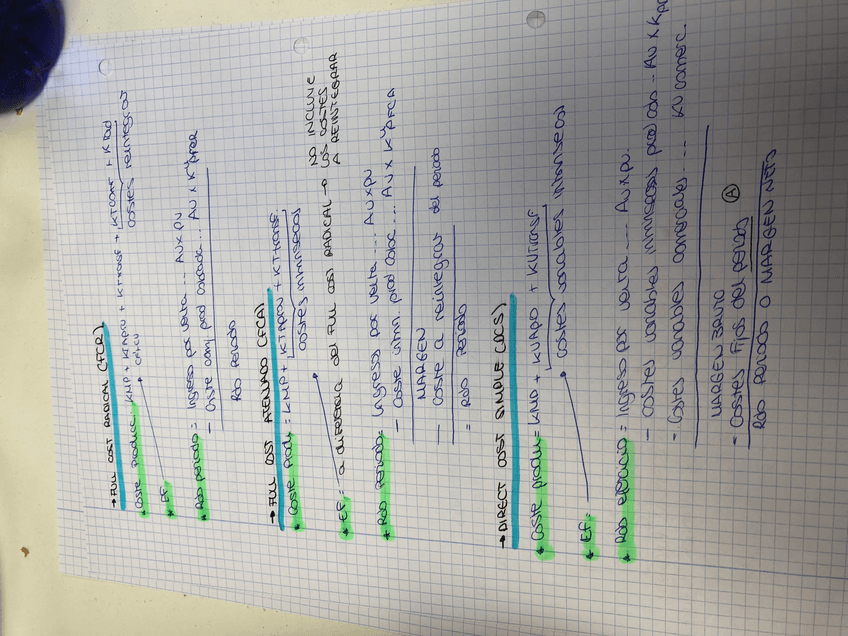 → FULL COST RADICAL (FCR)
* Coste Producc. KMP + KTAPROV + KTtransf + KTCOM + KTad
costes reintegrar
* Ef
* Rdo periodo = Ingreso por venta ... AU x PV
- Coste com. prod ... AU x K
Rdo Periodo
→ FULL COST ATENUADO (FCA)
* Coste Produ = KMP + KTAprov + KTtransf
costes inminsecos
* Ef = a diferencia del FULL COST RADICAL → NO INCLUYE
LOS COSTES
A REINTEGRAR
* Rdo Periodo = Ingresos por venta ... AU x PV
- Coste prod ... AU x K FCA
MARGEN
- Coste a reintegrar del periodo
= Rdo Periodo
→ DIRECT COST SIMPLE (DCS)
* Coste produ = KMP + KVAPO + KVtransf
costes variables intrinsecos
* Ef =
* Rdo ejercicio = Ingreso por venta ... AU x PV.
- costes variables prod ... AU x K
- Costes variables comerciales ... KV comerc.
MARGEN BRUTO
- COSTES Fijos del periodo (A)
Rdo PERIODO O MARGEN NETO